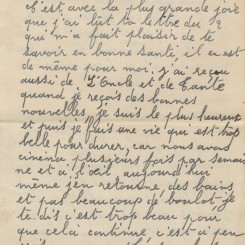 C'est avec la plus grande joie
que j'ai lut ta lettre du 2
qui m'a fait plaisir de te
savoir en bonne santé, il en est
de même pour moi. j'ai reçu
aussi de L'Oncle et de Tante
quand je reçois des bonnes
nouvelles, je suis le plus heureux
et puis je fais une vie qui est trop
belle pour durer, car nous avons
cinéma plusieurs fois par semai
ne et à l'œil aujourd'hui
même j'en retourne, des bains
et pas beaucoup de boulot, je
te dis c'est trop beau pour
que cela continue, c'est a peu